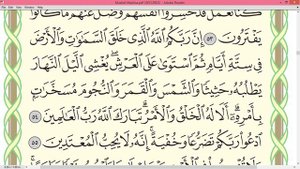 كُنَّا نَعْمَلُ قَدْ خَسِرُوٓا۟ أَنفُسَهُمْ وَضَلَّ عَنْهُم مَّا كَانُوا۟
يَفْتَرُونَ ٥٣ إِنَّ رَبَّكُمُ ٱللَّهُ ٱلَّذِى خَلَقَ ٱلسَّمَٰوَٰتِ وَٱلْأَرْضَ
فِى سِتَّةِ أَيَّامٍ ثُمَّ ٱسْتَوَىٰ عَلَى ٱلْعَرْشِ يُغْشِى ٱلَّيْلَ ٱلنَّهَارَ
يَطْلُبُهُۥ حَثِيثًا وَٱلشَّمْسَ وَٱلْقَمَرَ وَٱلنُّجُومَ مُسَخَّرَٰتٍۭ
بِأَمْرِهِۦٓ أَلَا لَهُ ٱلْخَلْقُ وَٱلْأَمْرُ تَبَارَكَ ٱللَّهُ رَبُّ ٱلْعَٰلَمِينَ ٥٤
ٱدْعُوا۟ رَبَّكُمْ تَضَرُّعًا وَخُفْيَةً إِنَّهُۥ لَا يُحِبُّ ٱلْمُعْتَدِينَ ٥٥